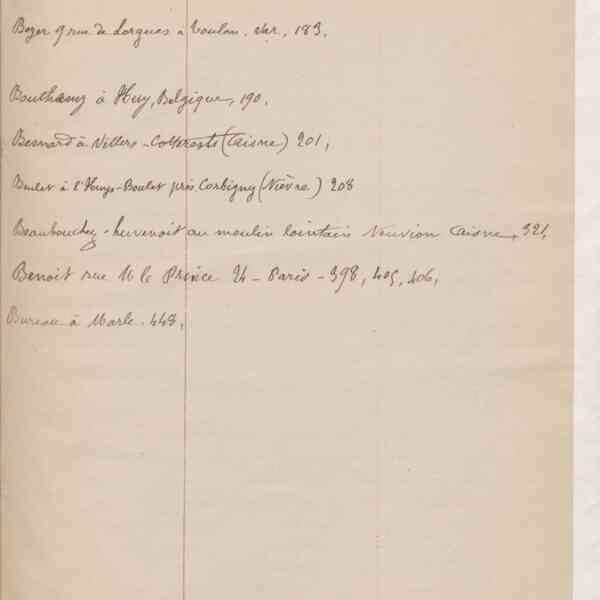 Bezer 9 rue de Lorgues a Toulon. Var, 183.
à Huy, Belgique, 190.
Besnard à Villers-Cotterets (Aisne) 201,
Boulet à l'Huys-Boulet près Corbigny (Nièvre) 208
au moulin lointain Nouvion Aisne, 321,
Benoit rue M le Prince 24 - Paris - 398, 405, 406,
Bureau à Marle. 448,